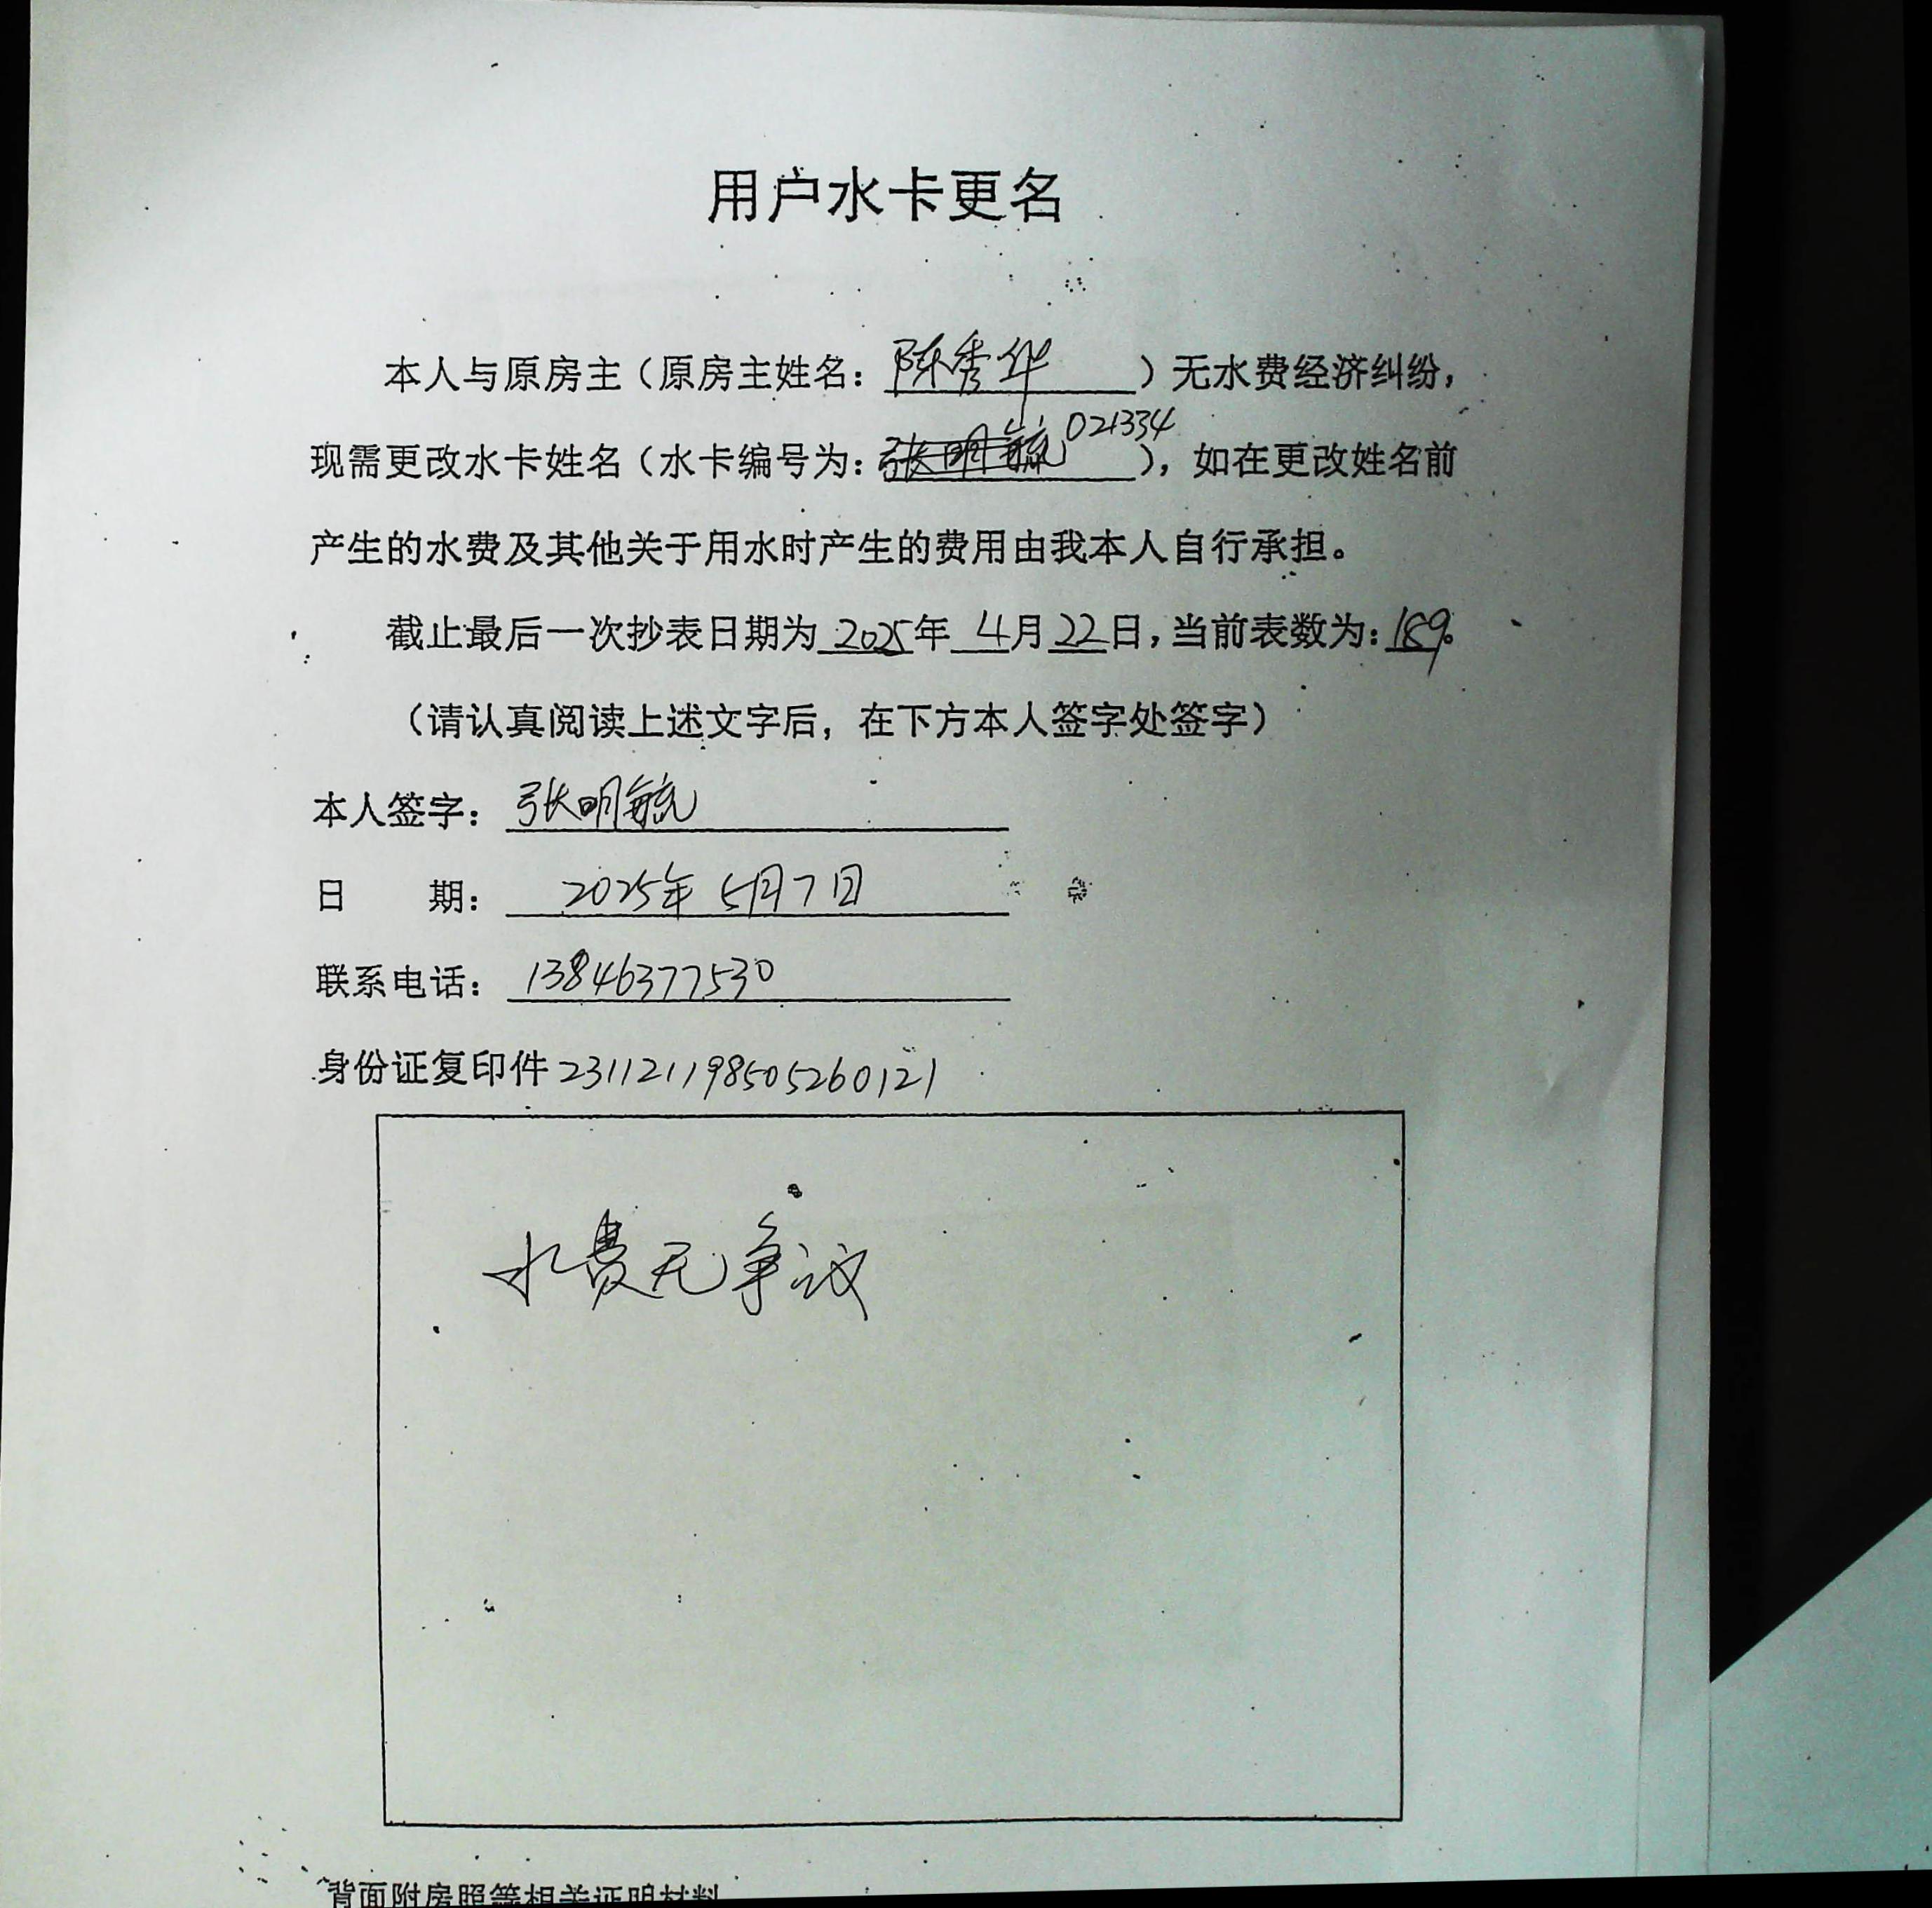 用户水卡更名
本人与原房主（原房主姓名：陈秀华）无水费经济纠纷，
现需更改水卡姓名（水卡编号为：张明毓021334），如在更改姓名前
产生的水费及其他关于用水时产生的费用由我本人自行承担。
截止最后一次抄表日期为2025年4月22日，当前表数为：189。
（请认真阅读上述文字后，在下方本人签字处签字）
本人签字：张明毓
日 期：2025年5月7日
联系电话：13846377530
身份证复印件231121198505260121
水费无争议
背面附房照等相关证明材料